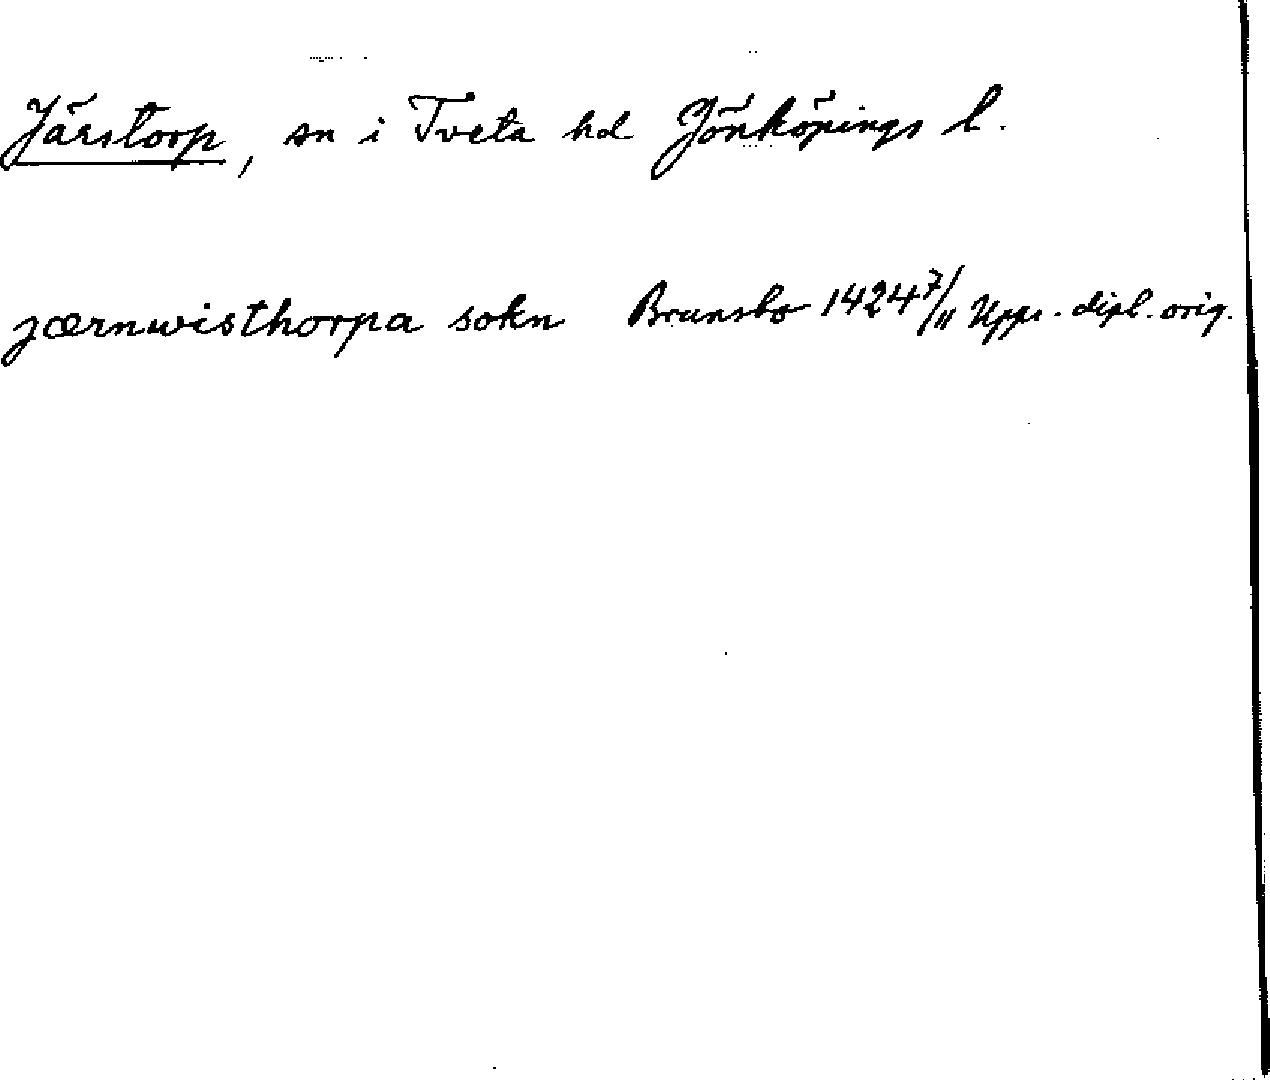 Järstorp, sn i Tveta hd Jönköpings l.
jærnwisthorpa sokn Brunsbo 1424 7/11 Upps. dipl. orig.